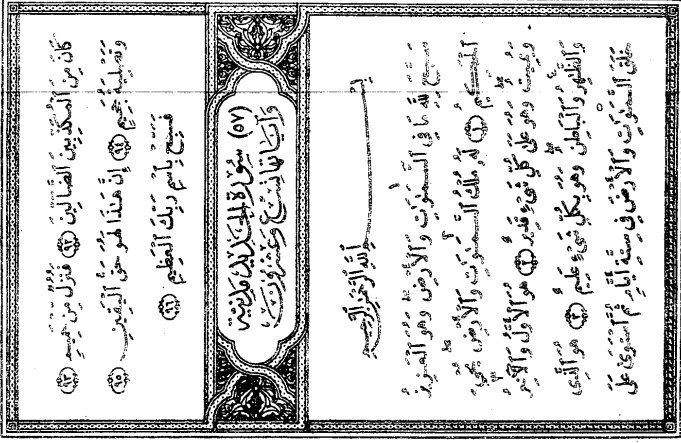 كَانَ مِنَ ٱلْمُكَذِّبِينَ ٱلضَّآلِّينَ ﴿٩٢﴾ فَنُزُلٌ مِّنْ حَمِيمٍ ﴿٩٣﴾
وَتَصْلِيَةُ جَحِيمٍ ﴿٩٤﴾ إِنَّ هَٰذَا لَهُوَ حَقُّ ٱلْيَقِينِ ﴿٩٥﴾
فَسَبِّحْ بِٱسْمِ رَبِّكَ ٱلْعَظِيمِ ﴿٩٦﴾
(٥٧) سُورَةُ الْحَدِيدِ مَدَنِيَّةٌ
وَآيَاتُهَا تِسْعٌ وَعِشْرُونَ
بِسْمِ ٱللَّهِ ٱلرَّحْمَٰنِ ٱلرَّحِيمِ
سَبَّحَ لِلَّهِ مَا فِى ٱلسَّمَٰوَٰتِ وَٱلْأَرْضِ وَهُوَ ٱلْعَزِيزُ
ٱلْحَكِيمُ ﴿١﴾ لَهُۥ مُلْكُ ٱلسَّمَٰوَٰتِ وَٱلْأَرْضِ يُحْىِۦ
وَيُمِيتُ وَهُوَ عَلَىٰ كُلِّ شَىْءٍ قَدِيرٌ ﴿٢﴾ هُوَ ٱلْأَوَّلُ وَٱلْآخِرُ
وَٱلظَّٰهِرُ وَٱلْبَاطِنُ وَهُوَ بِكُلِّ شَىْءٍ عَلِيمٌ ﴿٣﴾ هُوَ ٱلَّذِى
خَلَقَ ٱلسَّمَٰوَٰتِ وَٱلْأَرْضَ فِى سِتَّةِ أَيَّامٍ ثُمَّ ٱسْتَوَىٰ عَلَى